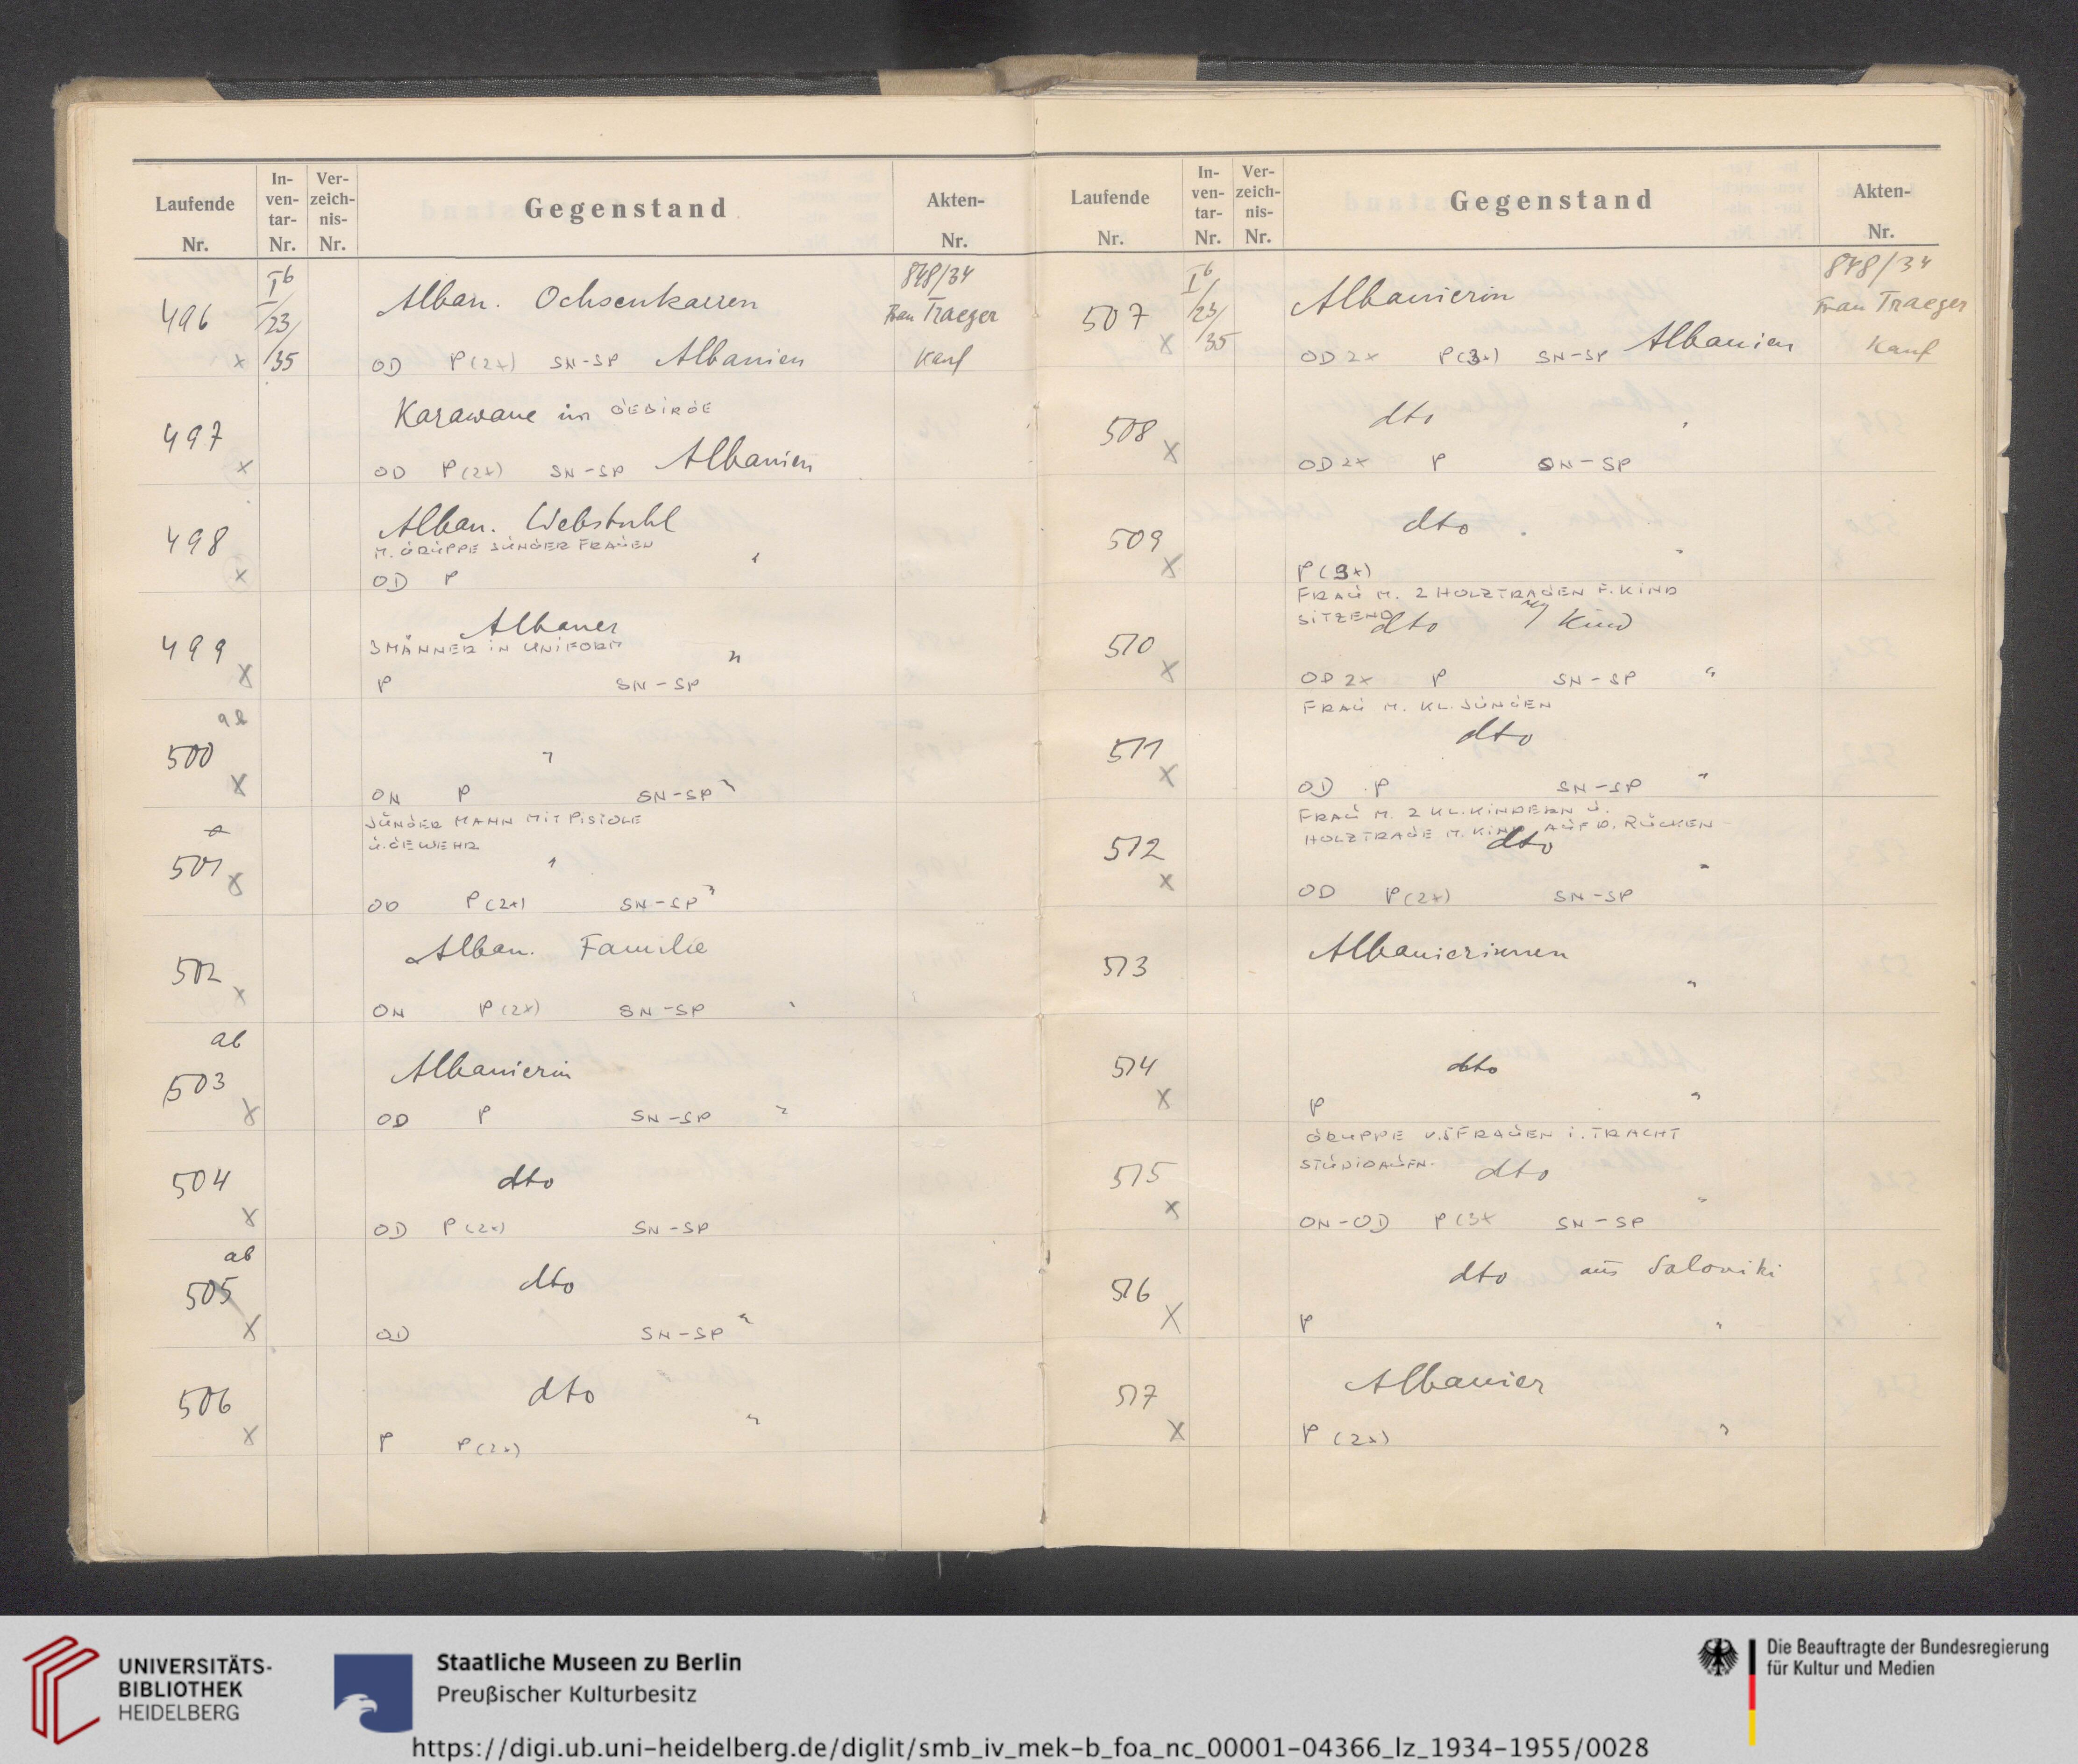 Laufende Nr.
In-ven-tar-Nr.
Ver-zeich-nis-Nr.
Gegenstand
Akten-Nr.
496
x
I b/23/35
Alban. Ochsenkarren
OD P (2x) SN-SP Albanien
848/34
Frau Traeger
Kauf
497
x
Karawane im GEBIRGE
OD P (2x) SN-SP Albanien
498
x
Alban. Webstuhl
M. GRUPPE JUNGER FRAUEN
"
OD P
499
x
Albaner
3 MÄNNER IN UNIFORM
"
P SN-SP
ab
500
x
"
ON P SN-SP "
501
x
JUNGER MANN MIT PISTOLE
U. GEWEHR
"
OD P (2x) SN-SP "
502
x
Alban. Familie
ON P (2x) SN-SP "
ab
503
x
Albanierin
OD P SN-SP "
504
x
dto
OD P (2x) SN-SP
ab
505
x
dto
OD SN-SP "
506
x
dto
"
P P (2x)
Laufende Nr.
In-ven-tar-Nr.
Ver-zeich-nis-Nr.
Gegenstand
Akten-Nr.
507
x
I b/23/35
Albanierin
OD 2x P (3x) SN-SP Albanien
848/34
Frau Traeger
Kauf
508
x
dto "
OD 2x P SN-SP
509
x
dto
"
P (3x)
510
x
FRAU M. 2 HOLZTRAGEN F. KIND
SITZEND dto Kind
OD 2x P SN-SP "
511
x
FRAU M. KL. JUNGEN
dto
OD P SN-SP "
512
x
FRAU M. 2 KL. KINDERN U.
HOLZTRAGE M. KIND AUF D. RÜCKEN
dto
"
OD P (2x) SN-SP
513
Albanierinnen
"
514
x
dto
P "
515
x
GRUPPE V. 5 FRAUEN I. TRACHT
STUDIOAUFN. dto
"
ON-OD P (3x SN-SP
516
x
dto aus Saloniki
P "
517
x
Albanier
P (2x) "
UNIVERSITÄTS-
BIBLIOTHEK
HEIDELBERG
Staatliche Museen zu Berlin
Preußischer Kulturbesitz
Die Beauftragte der Bundesregierung
für Kultur und Medien
https://digi.ub.uni-heidelberg.de/diglit/smb_iv_mek-b_foa_nc_00001-04366_lz_1934-1955/0028